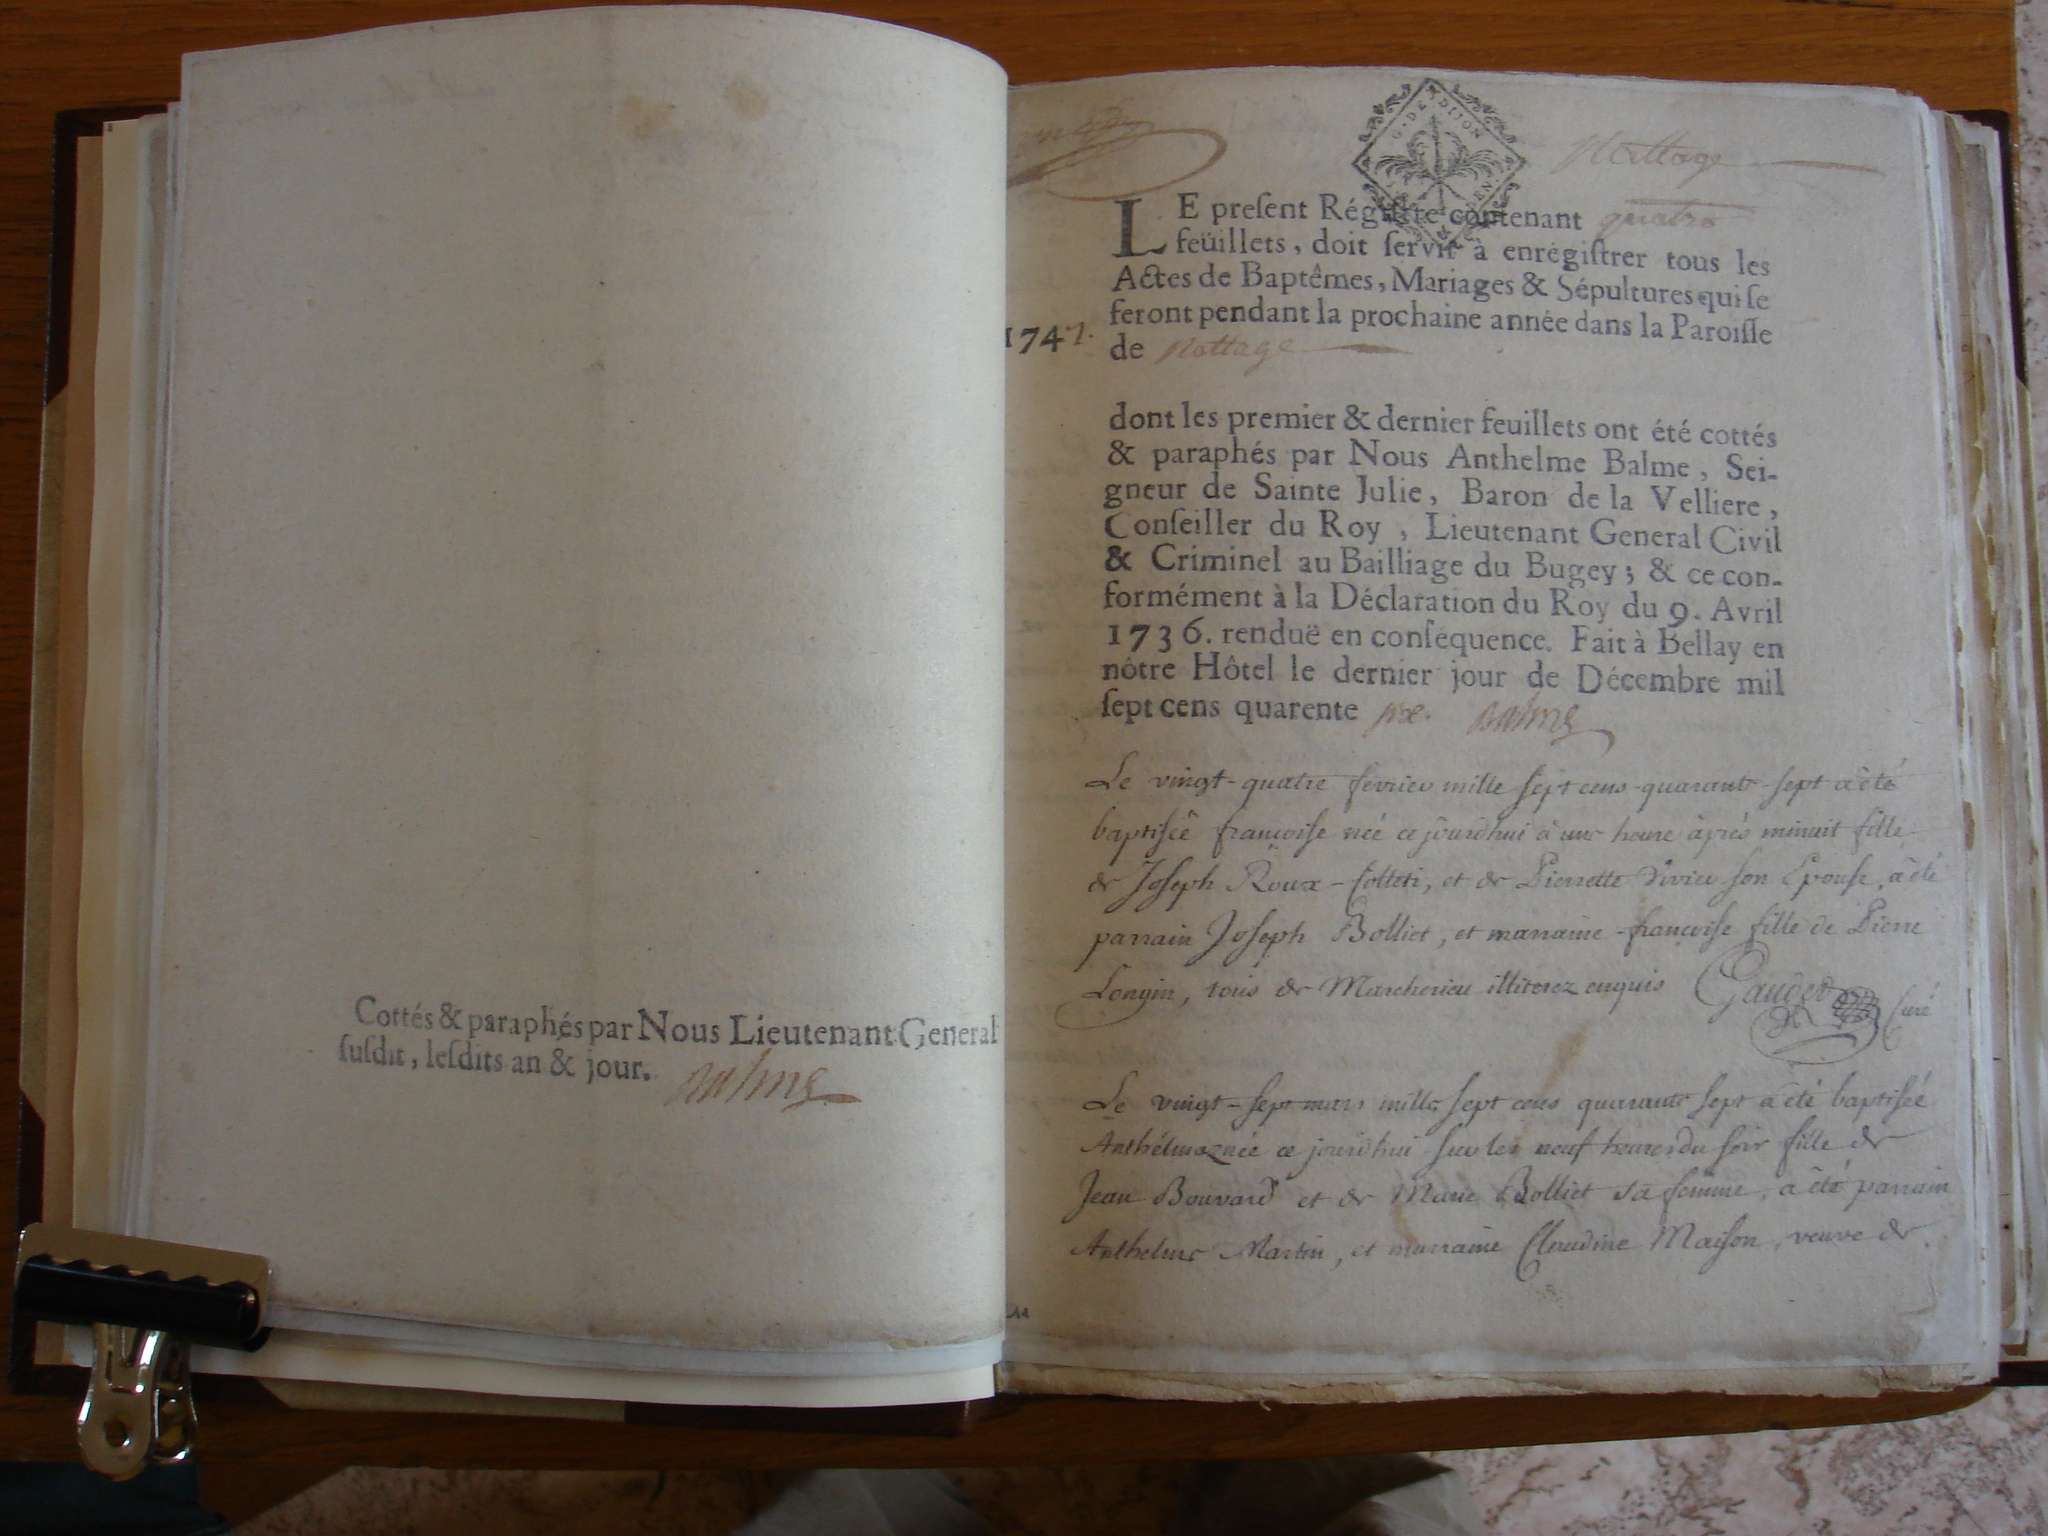 Cottés & paraphés par Nous Lieutenant General
susdit, lesdits an & jour. Balme
G. DE DIJON
Nattage
1747.
LE present Régistre contenant quatre
feüillets, doit servir à enrégistrer tous les
Actes de Baptêmes, Mariages & Sépultures qui se
feront pendant la prochaine année dans la Paroisse
de Nattage
dont les premier & dernier feuillets ont été cottés
& paraphés par Nous Anthelme Balme, Sei-
gneur de Sainte Julie, Baron de la Velliere,
Conseiller du Roy, Lieutenant General Civil
& Criminel au Bailliage du Bugey; & ce con-
formément à la Déclaration du Roy du 9. Avril
1736. renduë en conséquence. Fait à Bellay en
nôtre Hôtel le dernier jour de Décembre mil
sept cens quarente six. Balme
Le vingt-quatre fevrier mille sept cens-quarante-sept a été
baptisée françoise née ce jourd'hui à une heure après minuit fille
de Joseph Roux-Collet, et de Pierrette Vivier son Epouse, a été
parrain Joseph Bolliet, et marraine françoise fille de Pierre
Longin, tous de illiterez enquis Gaudet Curé
Le vingt-sept mars mille sept cens quarante sept a été baptisée
née ce jourd'hui sur les neuf heures du soir fille de
Jean Bouvard et de Marie Bolliet sa femme, a été parrain
Anthelme Martin, et marraine Claudine Maison, veuve de